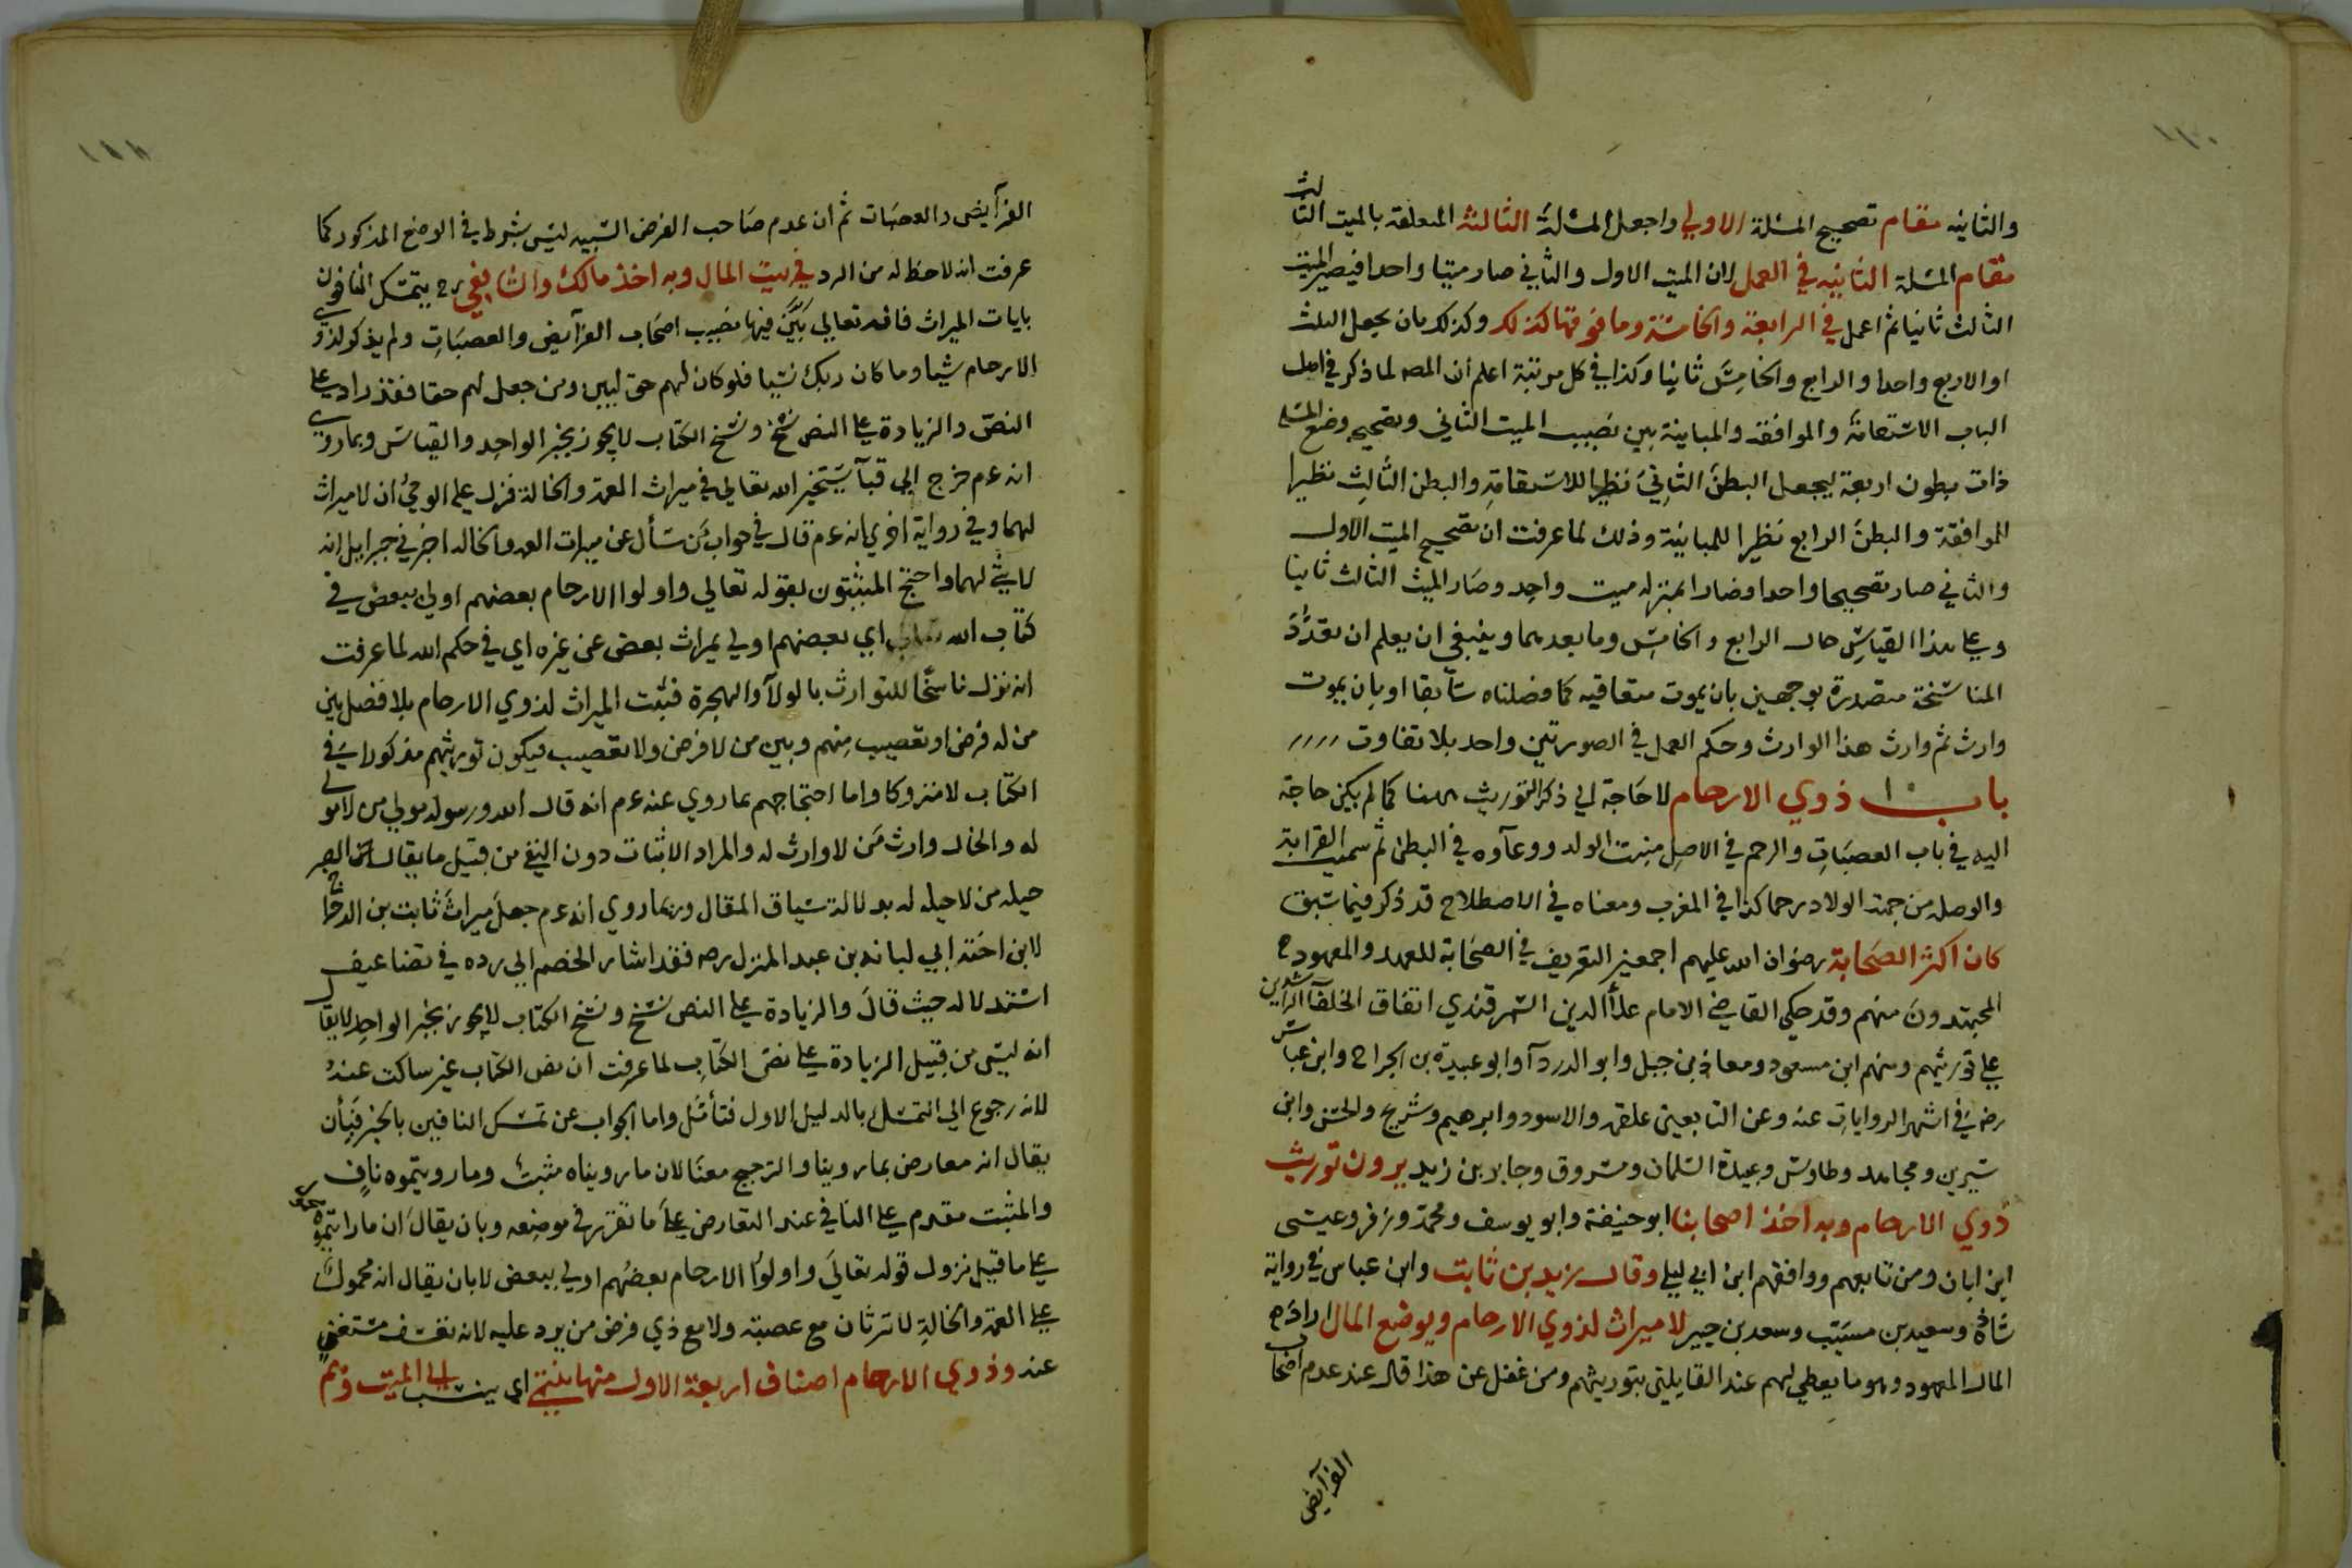 والثانيه مقام تصحيح المسئلة الاولي واجعل المسئلة الثالثة المتعلقة بالميت الثالث
مقام المسئلة الثانيه في العمل لان الميت الاول والثاني صار ميتا واحدا فيصير الميت
الثالث ثانيا ثم اعمل في الرابعة والخامسة وما فوقها كذلك وكذلك بان يجعل الثلث
او الاربع واحدا والرابع والخامس ثانيا وكذا في كل مرتبة اعلم ان المصـ لما ذكر في اصل
الباب الاستقامة والموافقة والمباينة بين نصيب الميت الثاني وتصحيحه وضع المسئلة
ذات بطون اربعة ليجعل البطن الثاني نظيرا للاستقامة والبطن الثالث نظيرا
للموافقة والبطن الرابع نظيرا للمباينة وذلك لما عرفت ان تصحيح الميت الاول
والثاني صار تصحيحا واحدا وصارا بمنزلة ميت واحد وصار الميت الثالث ثانيا
وعلي هذا القياس حال الرابع والخامس وما بعدهما وينبغي ان يعلم ان تعدد
المناسخة متصورة بوجهين بان يموت متعاقبه كما فصلناه سآبقا او بان يموت
وارث ثم وارث هذا الوارث وحكم العمل في الصورتين واحد بلا تفاوت
باب ذوي الارحام لا حاجة الي ذكر التوريث ههنا كما لم يكن حاجة
اليه في باب العصبات والرحم في الاصل منبت الولد ووعآوه في البطن ثم سميت القرابة
والوصلة من جهة الولاد رحما كذا في المغرب ومعناه في الاصطلاح قد ذكر فيما سبق
كان اكثر الصحابة رضوان الله عليهم اجمعين التعريف في الصحابة للعهد والمعهود ح
المجتهدون منهم وقد حكي القاضي الامام علآ الدين السمرقندي اتفاق الخلفآ الراشدين
علي توريثهم ومنهم ابن مسعود ومعاذ بن جبل وابو الدردآ وابو عبيدة بن الجراح وابن عباس
رض في اشهر الروايات عنه وعن التابعين علقمة والاسود وابرهيم وشريح والحسن وابن
سيرين ومجاهد وطاوس وعبيدة السلمان ومسروق وجابر بن زيد يرون توريث
ذوي الارحام وبه اخذ اصحابنا ابو حنيفة وابو يوسف ومحمد وزفر وعيسى
ابن ابان ومن تابعهم ووافقهم ابن ابي ليلي وقال زيد بن ثابت وابن عباس في رواية
شاذة وسعيد بن مسيب وسعد بن جبير لا ميراث لذوي الارحام ويوضع المال اراد به
المال المعهود وهو ما يعطي لهم عند القايلين بتوريثهم ومن غفل عن هذا قال عند عدم اصحاب
الفرآيض
الفرآيض والعصبات ثم ان عدم صاحب الفرض النسبيه ليس بشرط في الوضع المذكور كما
عرفت انه لا حظ له من الرد في بيت المال وبه اخذ مالك والشافعي رح يتمسك النافون
بايات الميراث فانه تعالي بين فيها نصيب اصحاب الفرآيض والعصبات ولم يذكر لذوي
الارحام شيا وما كان ربك نسيا فلو كان لهم حق لبين ومن جعل لهم حقا فقد زاد علي
النص والزيادة علي النص نسخ ونسخ الكتاب لا يجوز بخبر الواحد والقياس وبما روي
انه عم خرج الي قبآ يستخير الله تعالي في ميراث العمة والخالة فنزل عليه الوحي ان لا ميراث
لهما وفي رواية اخري انه عم قال في جواب من سأل عن ميراث العمة والخالة اخبرني جبرايل انه
لا شئ لهما واحتج المثبتون بقوله تعالي واولوا الارحام بعضهم اولي ببعض في
كتاب الله تعالي اي بعضهم اولي بميراث بعض عن غيره اي في حكم الله لما عرفت
انه نزل ناسخا للتوارث بالولآ والهجرة فثبت الميراث لذوي الارحام بلا فصل بين
من له فرض او تعصيب منهم وبين من لا فرض ولا تعصيب فيكون توريثهم مذكورا في
الكتاب لا متروكا واما احتجاجهم بما روي عنه عم انه قال الله ورسوله مولي من لا مولي
له والخال وارث من لا وارث له والمراد الاثبات دون النفي من قبيل ما يقال الصبر
حيلة من لا حيلة له بدلالة سياق المقال وبما روي انه عم جعل ميراث ثابت بن الدحداح
لابن اخته ابي لبانه بن عبد المنزل رضه فقد اشار الخصم الي رده في تضاعيف
استدلاله حيث قال والزيادة علي النص نسخ ونسخ الكتاب لا يجوز بخبر الواحد لا يقال
انه ليس من قبيل الزيادة علي نص الكتاب لما عرفت ان نص الكتاب غير ساكت عنه
لانه رجوع الي التمسك بالدليل الاول فتأمل واما الجواب عن تمسك النافين بالخبر فبأن
يقال انه معارض بما روينا والترجيح معنا لان ما رويناه مثبت وما رويتموه ناف
والمثبت مقدم علي النافي عند التعارض علي ما تقرر في موضعه وبان يقال ان ما رايتموه
علي ما قبل نزول قوله تعالي واولوا الارحام بعضهم اولي ببعض لا بان يقال انه محمول
علي العمة والخالة لا ترثان مع عصبة ولا مع ذي فرض من يرد عليه لانه تعسف مستغني
عنه وذوي الارحام اصناف اربعة الاول منها ينتمي اي ينسب الي الميت وهم